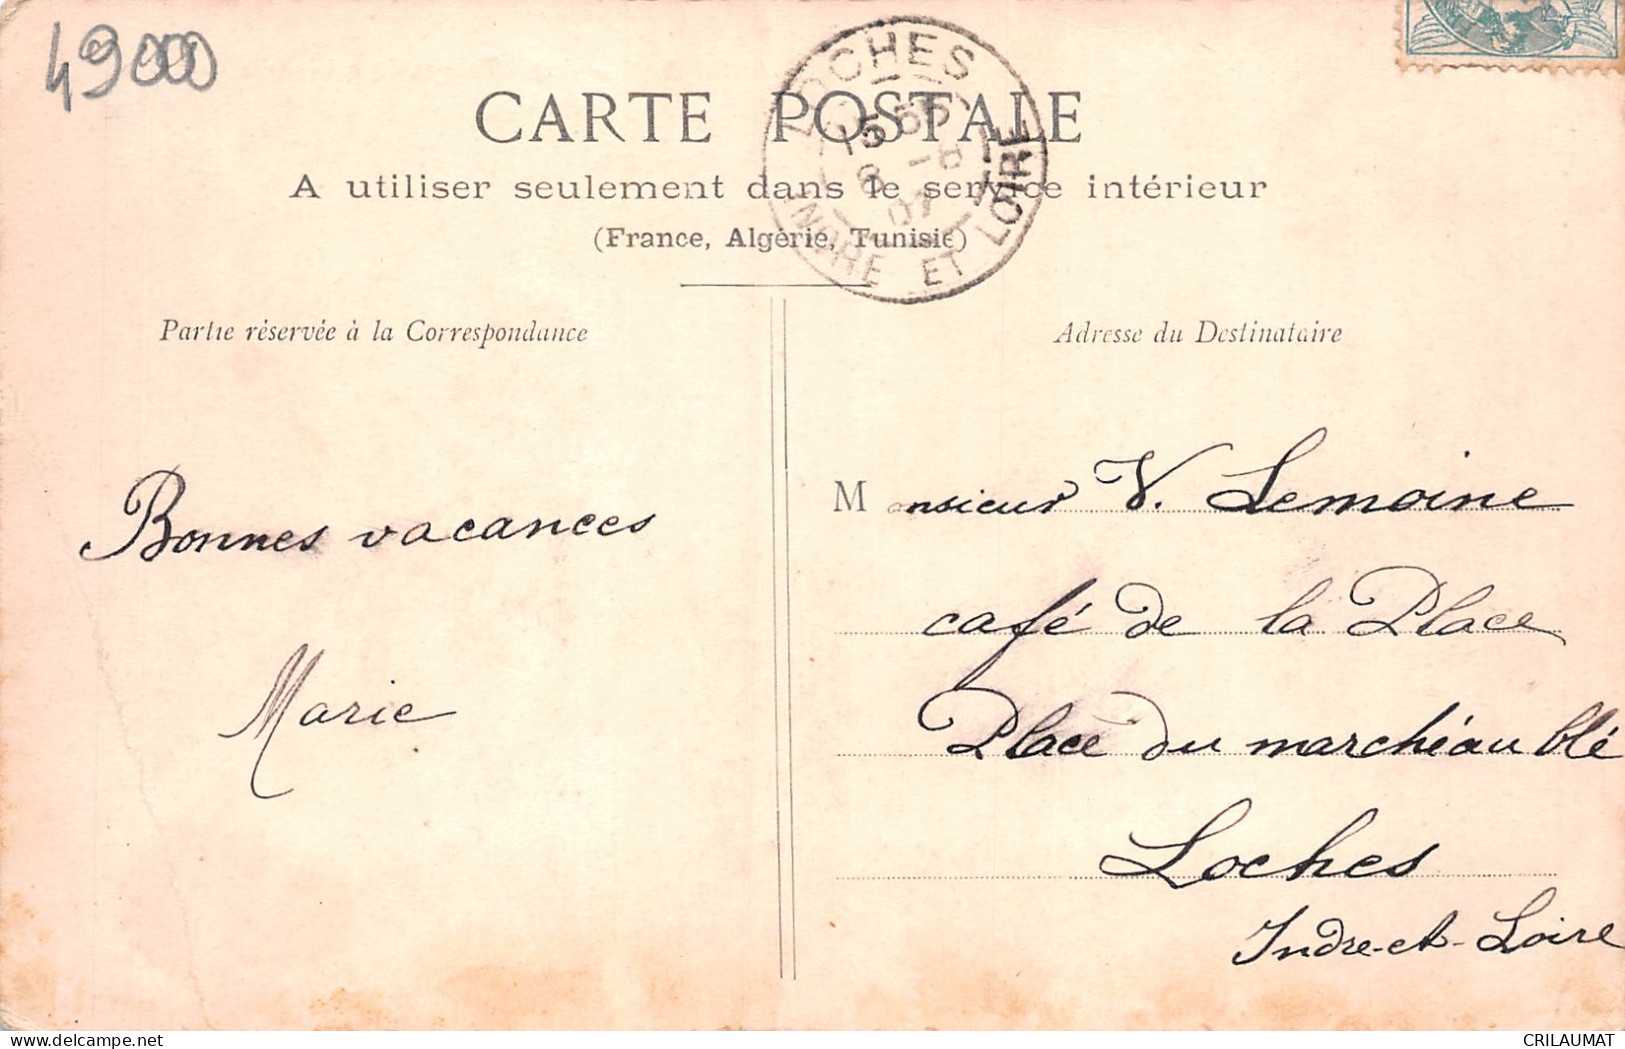 49000
LOCHES
INDRE ET LOIRE
CARTE POSTALE
A utiliser seulement dans le service intérieur
(France, Algérie, Tunisie)
Partie réservée à la Correspondance
Adresse du Destinataire
Bonnes vacances
Marie
Monsieur V. Lemoine
café de la Place
Place du marché au blé
Loches
Indre-et-Loire
CRILAUMAT